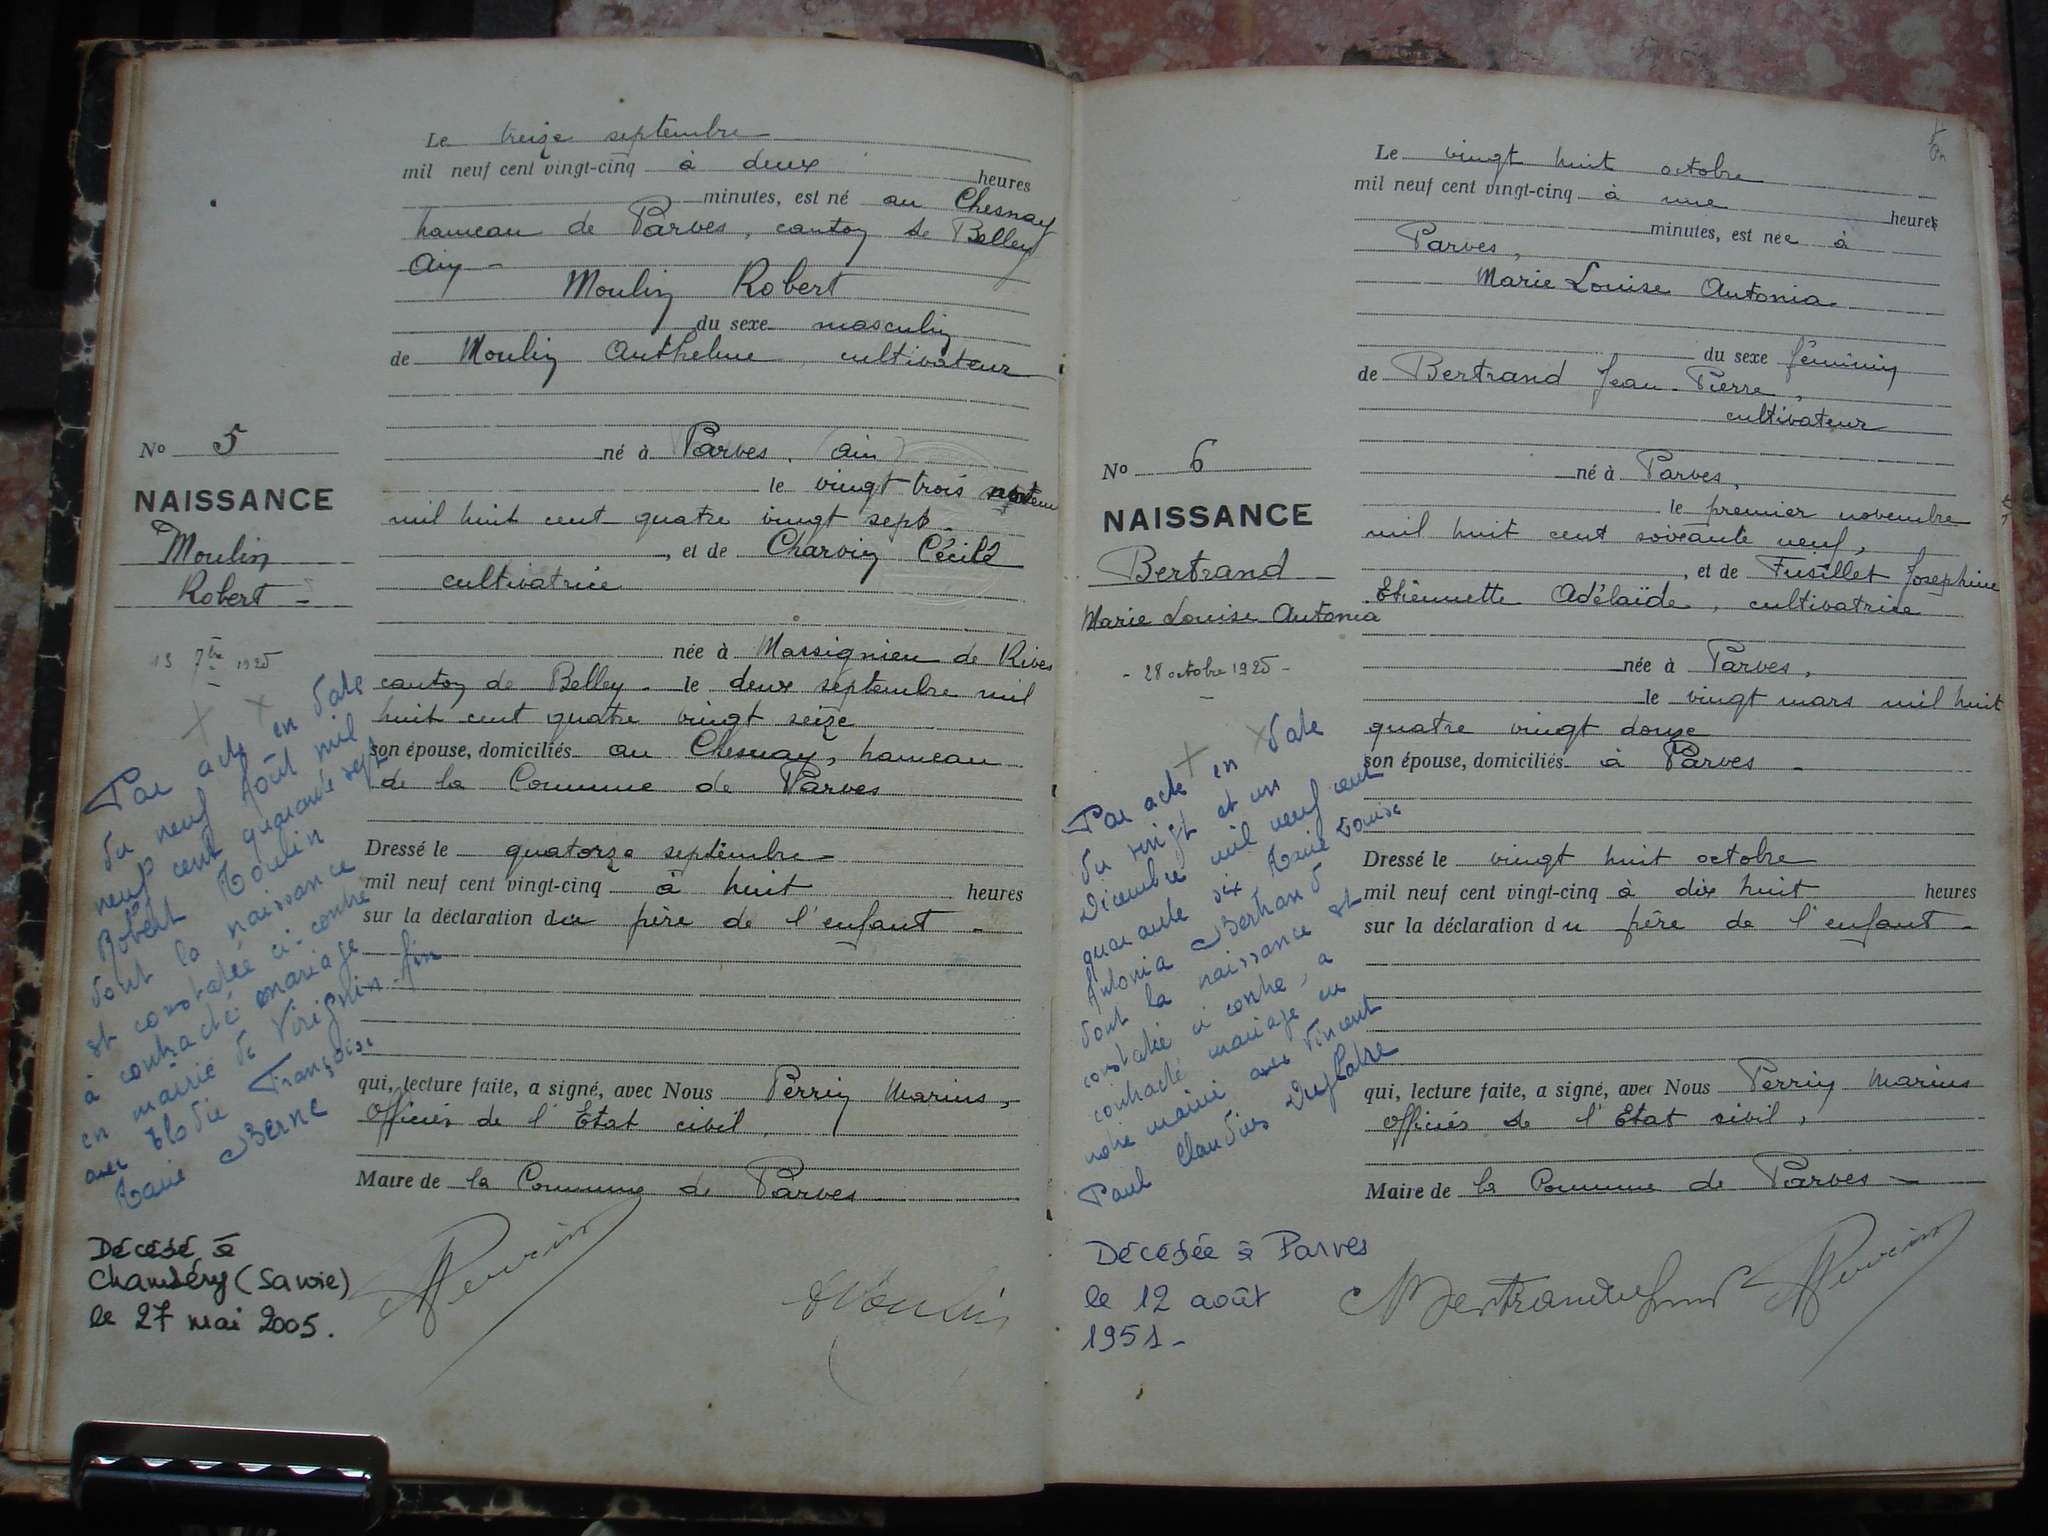 Le treize septembre
mil neuf cent vingt-cinq à deux heures
minutes, est né au Chesnay
hameau de Parves, canton de Belley
Ain -
Moulin Robert
du sexe masculin
de Moulin Anthelme, cultivateur
né à Parves. (Ain)
le vingt trois
mil huit cent quatre vingt sept.
, et de Charvin Cécile
cultivatrice
née à Massignieu de Rives
canton de Belley. le deux septembre mil
huit cent quatre vingt seize
son épouse, domiciliés au Chesnay, hameau
de la Commune de Parves
Dressé le quatorze septembre
mil neuf cent vingt-cinq à huit heures
sur la déclaration du père de l'enfant -
qui, lecture faite, a signé, avec Nous Perrin Marius,
Officier de l'Etat civil,
Maire de la Commune de Parves
Perrin
Moulin
No 5
NAISSANCE
Moulin
Robert -
13 7bre 1925
Par acte en date
du neuf Août mil
neuf cent quarante sept
Robert Moulin
dont la naissance
est constatée ci-contre
a contracté mariage
en mairie de Virignin Ain
avec Elodie Françoise
Marie Berne
Décédé à
Chambéry (Savoie)
le 27 mai 2005.
Le vingt huit octobre
mil neuf cent vingt-cinq à une heures
minutes, est née à
Parves,
Marie Louise Antonia
du sexe féminin
de Bertrand Jean-Pierre,
cultivateur
né à Parves,
le premier novembre
mil huit cent soixante neuf,
, et de Fusillet Josephine
Etiennette Adélaïde, cultivatrice
née à Parves,
le vingt mars mil huit
quatre vingt douze
son épouse, domiciliés à Parves -
Dressé le vingt huit octobre
mil neuf cent vingt-cinq à dix huit heures
sur la déclaration du père de l'enfant -
qui, lecture faite, a signé, avec Nous Perrin Marius
Officier de l'Etat civil,
Maire de la Commune de Parves -
Perrin
No 6
NAISSANCE
Bertrand -
Marie Louise Antonia
- 28 octobre 1925 -
Par acte en date
du vingt et un
Décembre mil neuf cent
quarante six Marie Louise
Antonia Bertrand
dont la naissance est
constatée ci contre, a
contracté mariage en
notre mairie avec Vincent
Paul Claudius
Décédée à Parves
le 12 août
1951 -